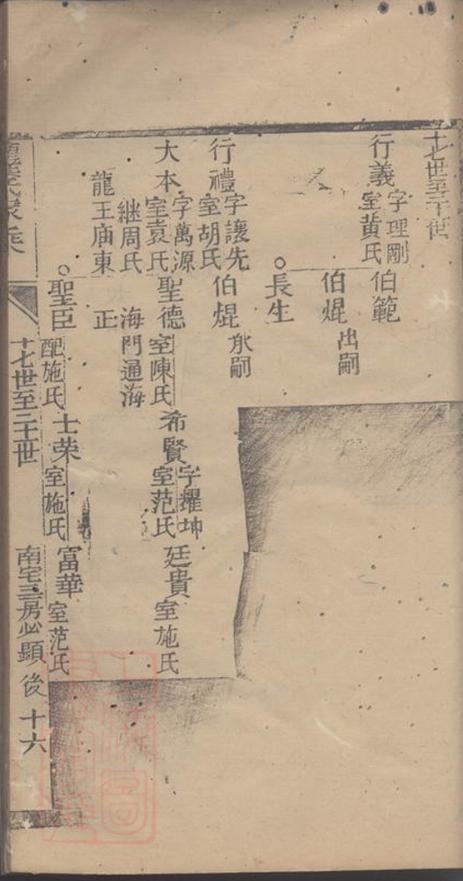 十七世至二十世
行義 字理剛 室黃氏 伯範
伯焜 出嗣
長生
行禮 字讓先 室胡氏 伯焜 承嗣
大本 字萬源 室袁氏 聖德 室陳氏 希賢 字耀坤 室范氏 廷貴 室施氏
継周氏 海門通海
龍王廟東 正
聖臣 配施氏 士荣 室施氏 富華 室范氏
十七世至二十世 南宅三房必顯後 十六